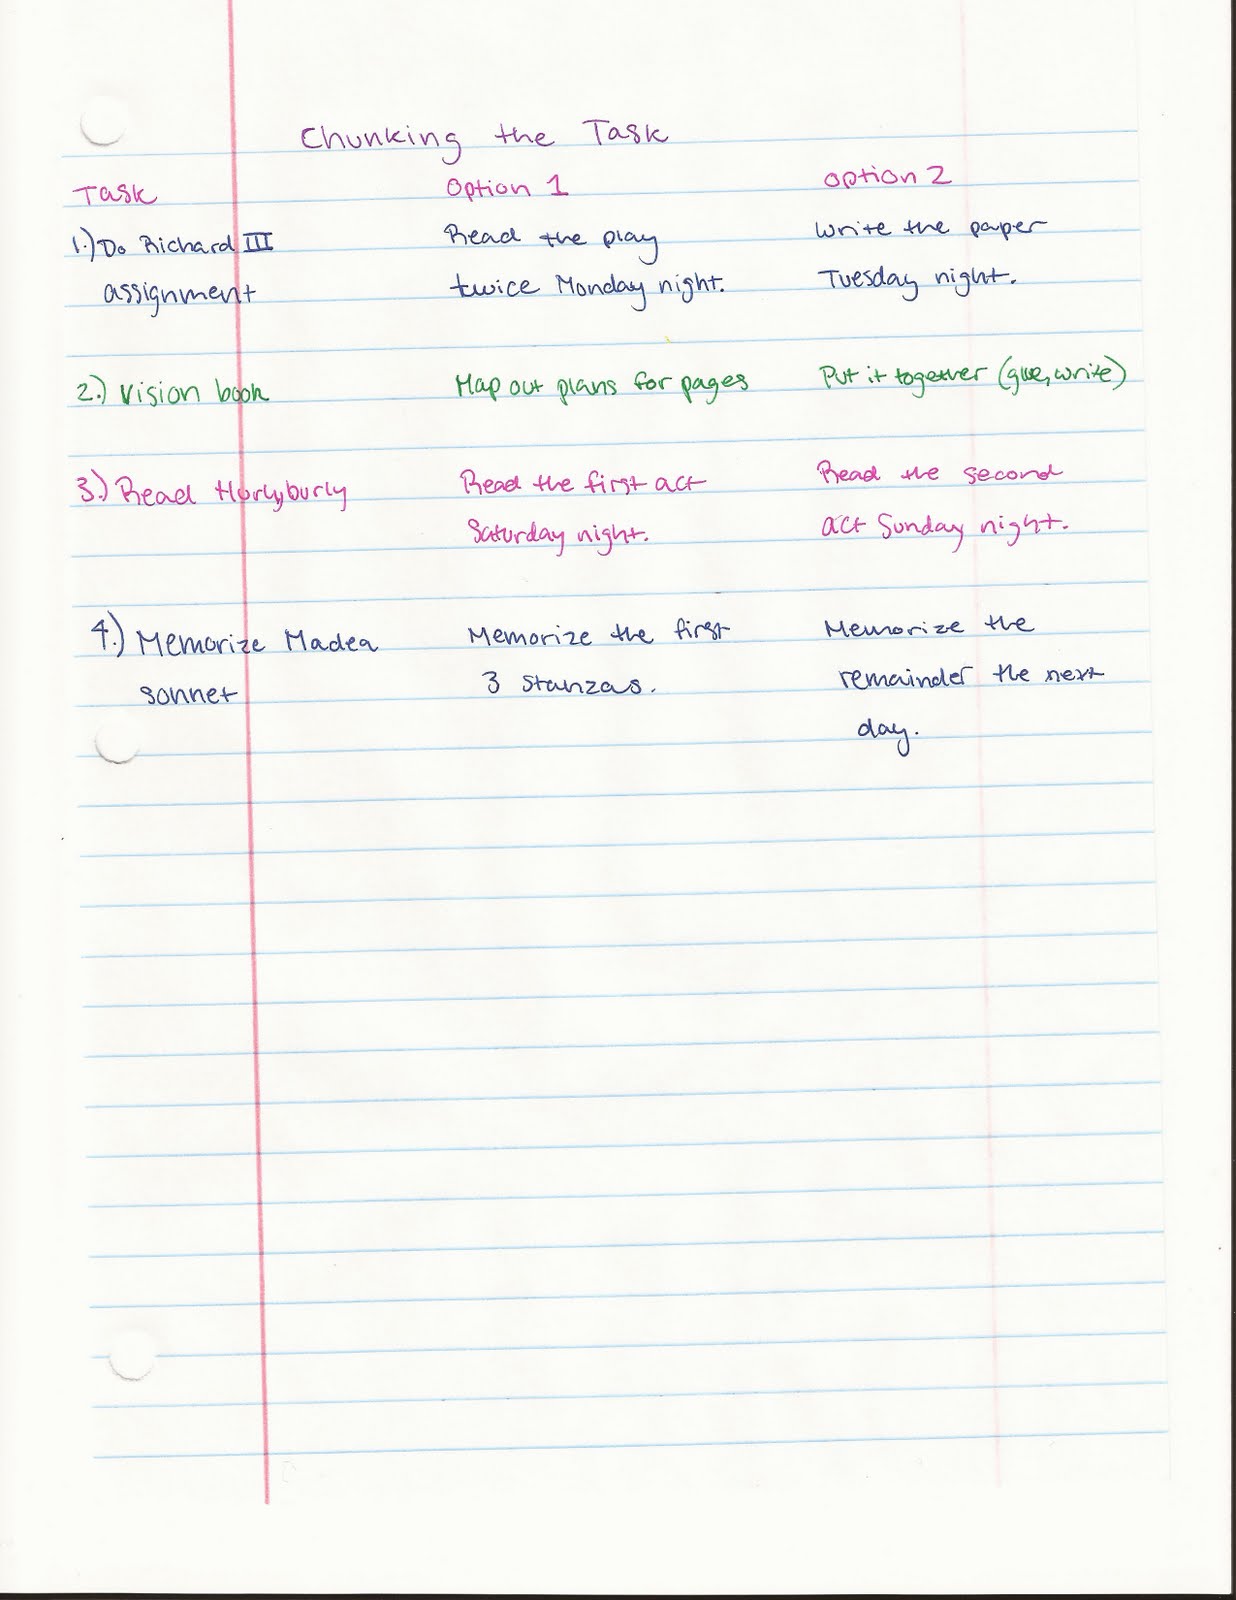 Chunking the Task
Task Option 1 Option 2
1.) Do Richard III Read the play Write the paper
assignment twice Monday night. Tuesday night.
2.) Vision book Map out plans for pages Put it together (glue, write)
3.) Read Hurlyburly Read the first act Read the second
Saturday night. act Sunday night.
4.) Memorize Madea Memorize the first Memorize the
sonnet 3 stanzas. remainder the next
day.